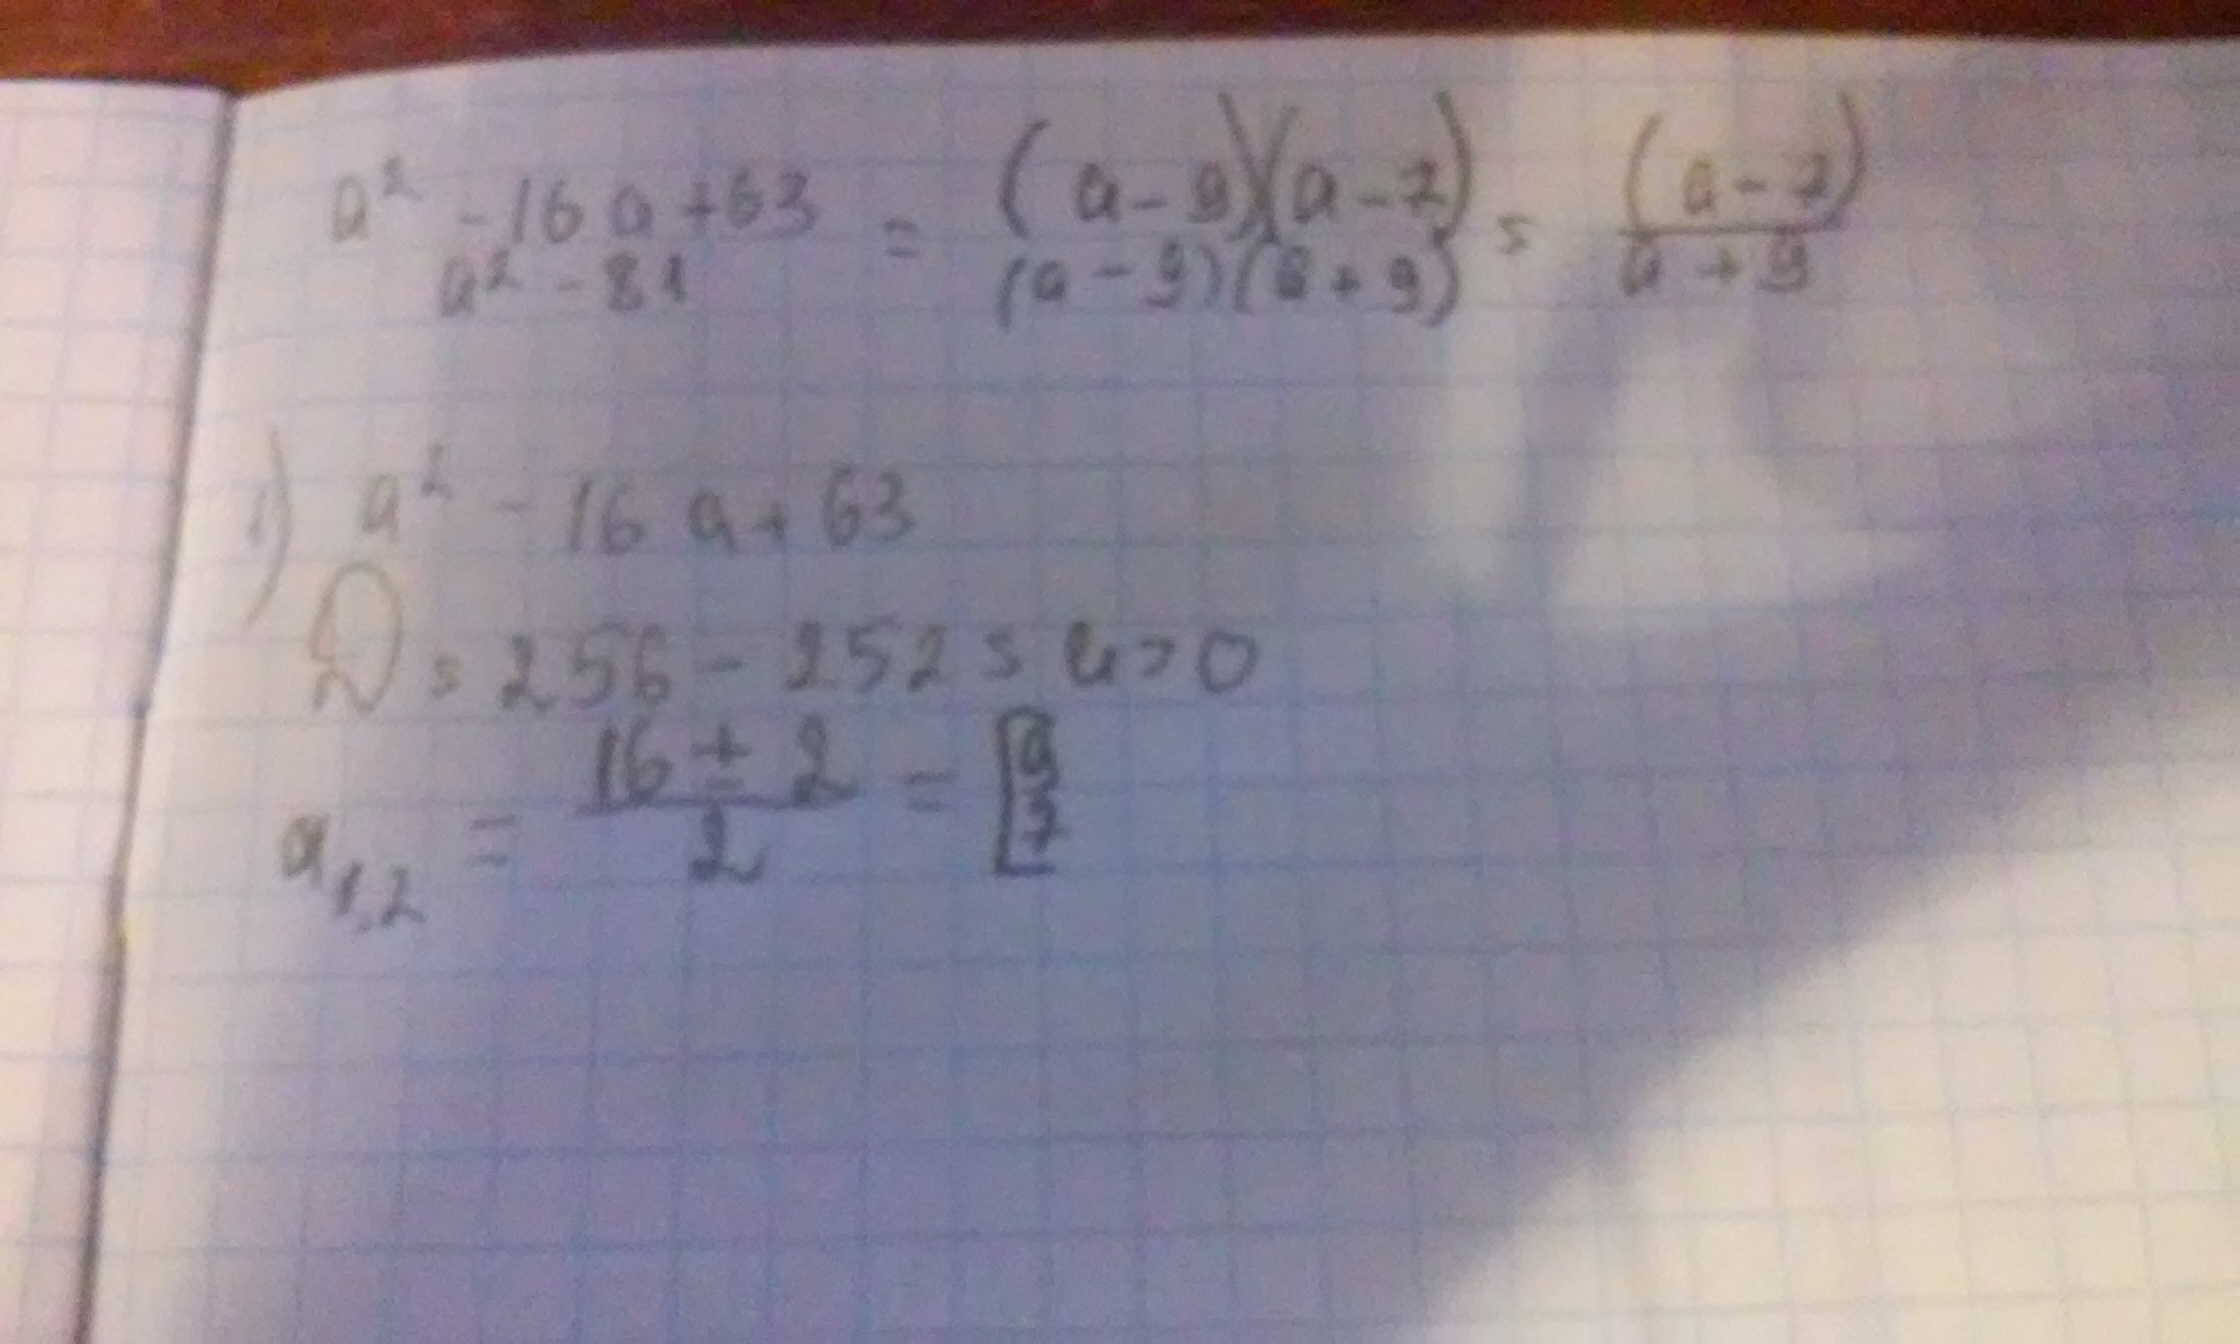 a² - 16a + 63 = (a - 9)(a - 7) = (a - 7)
a² - 81 (a - 9)(a + 9) a + 9
1) a² - 16a + 63
D = 256 - 252 = 4 > 0
a₁,₂ = 16 ± 2 / 2 = [9 7